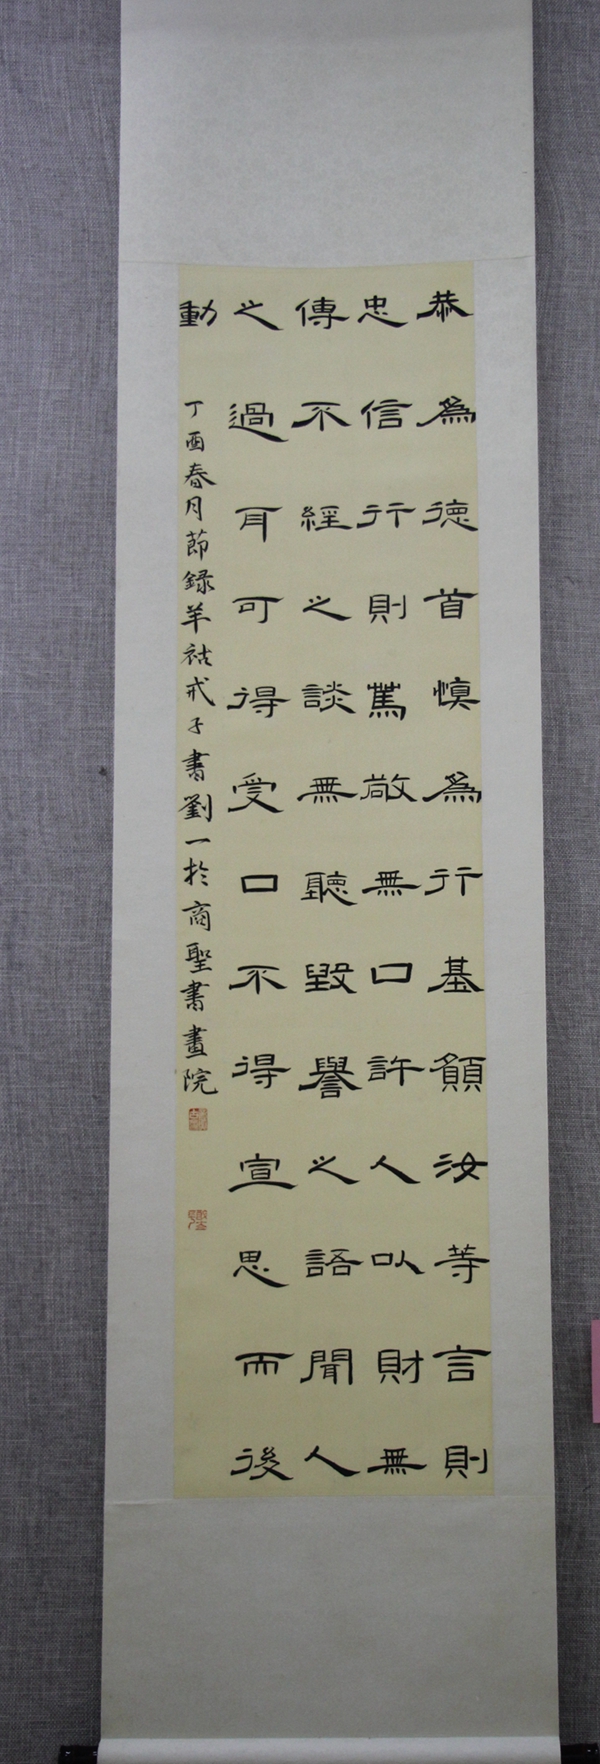 恭爲德首慎爲行基願汝等言則
忠信行則篤敬無口許人以財無
傳不經之談無聽毀譽之語聞人
之過耳可得受口不得宣思而後
動
丁酉春月節録羊祜戒子書劉一於商聖書畫院